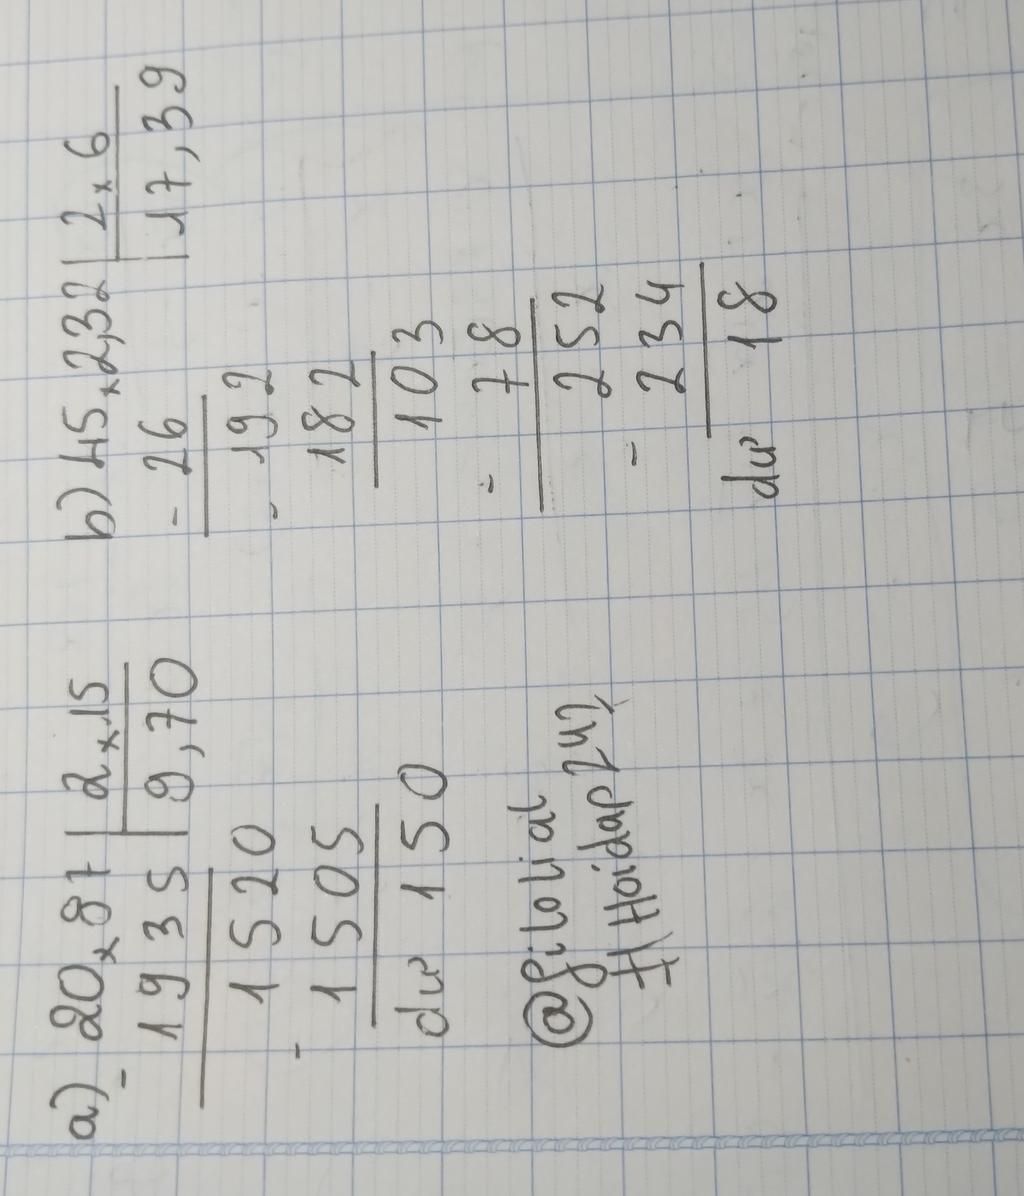 a) 20,87 | 2,15
- 1935 | 9,70
1520
- 1505
dư 150
@gilolial
#Hoidap247
b) 45,2,32 | 2,6
- 26 | 17,39
- 192
182
103
- 78
252
- 234
dư 18